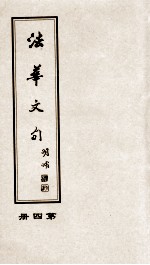 法華文句
第四册